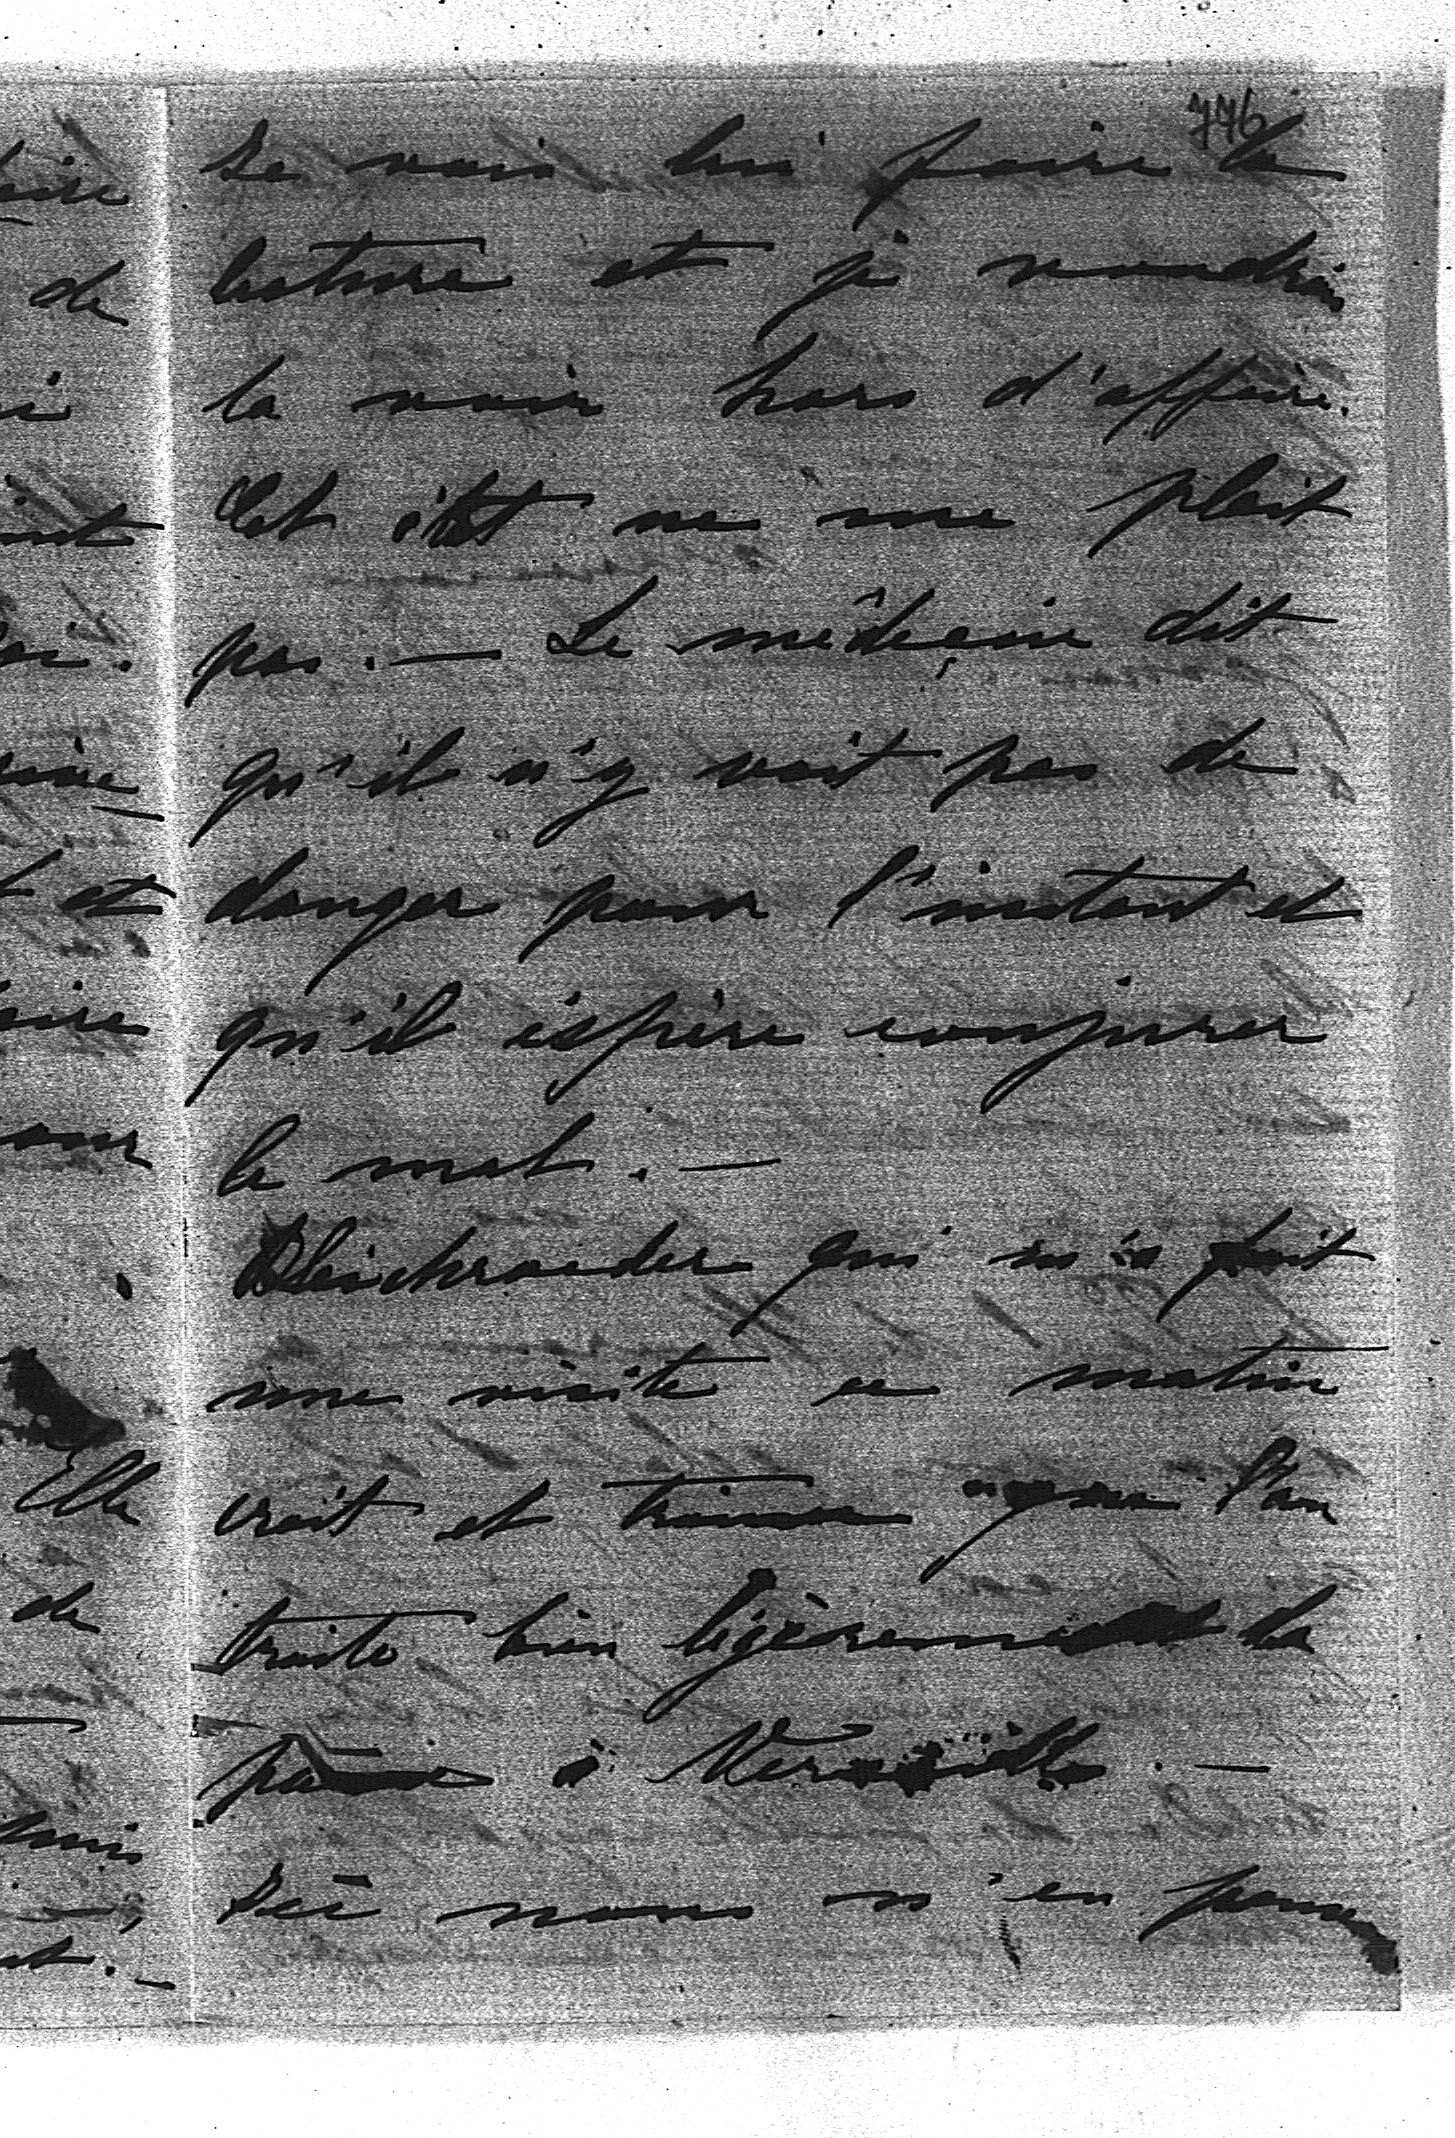 776
Je vais lui faire la
lecture et je voudrais
la voir hors d'affaire.
Cet état ne me plait
pas. — Le médecin dit
qu'il n'y voit pas de
danger pour l'instant et
qu'il éspère conjurer
le mal. —
Bleichroeder qui m'a fait
une visite ce matin
croit et trouve que l'on
traite bien légèrement la
à Versailles. —
Ici nous n'en